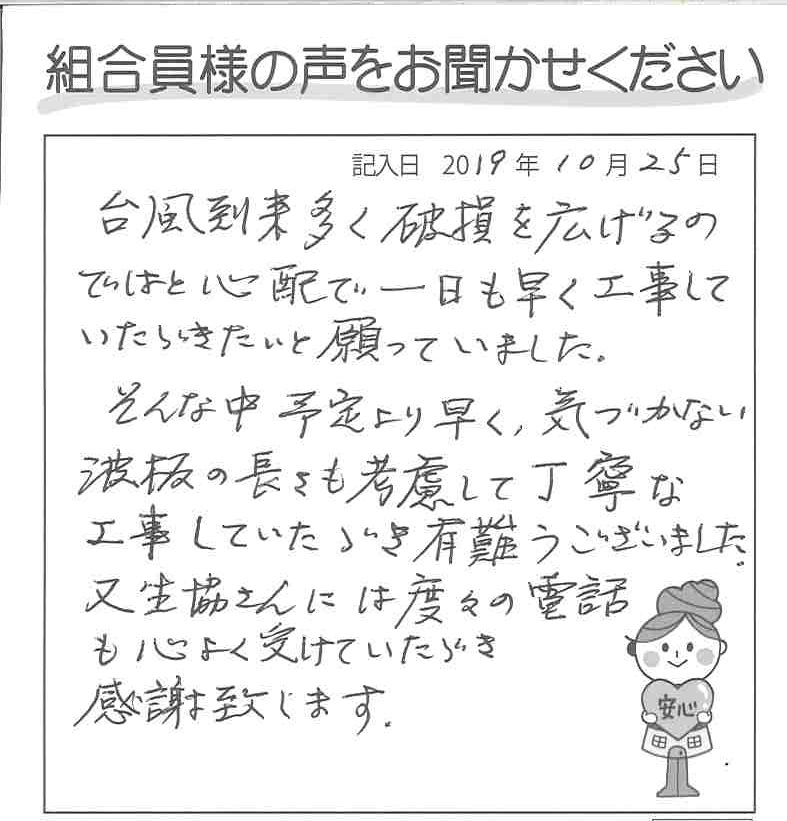 組合員様の声をお聞かせください
記入日 2019年10月25日
台風到来多く破損を広げるの
ではと心配で一日も早く工事して
いただきたいと願っていました。
そんな中 予定より早く、気づかない
波板の長さも考慮して丁寧な
工事していただき有難うございました。
又生協さんには度々の電話
も心よく受けていただき
感謝致します。
安心